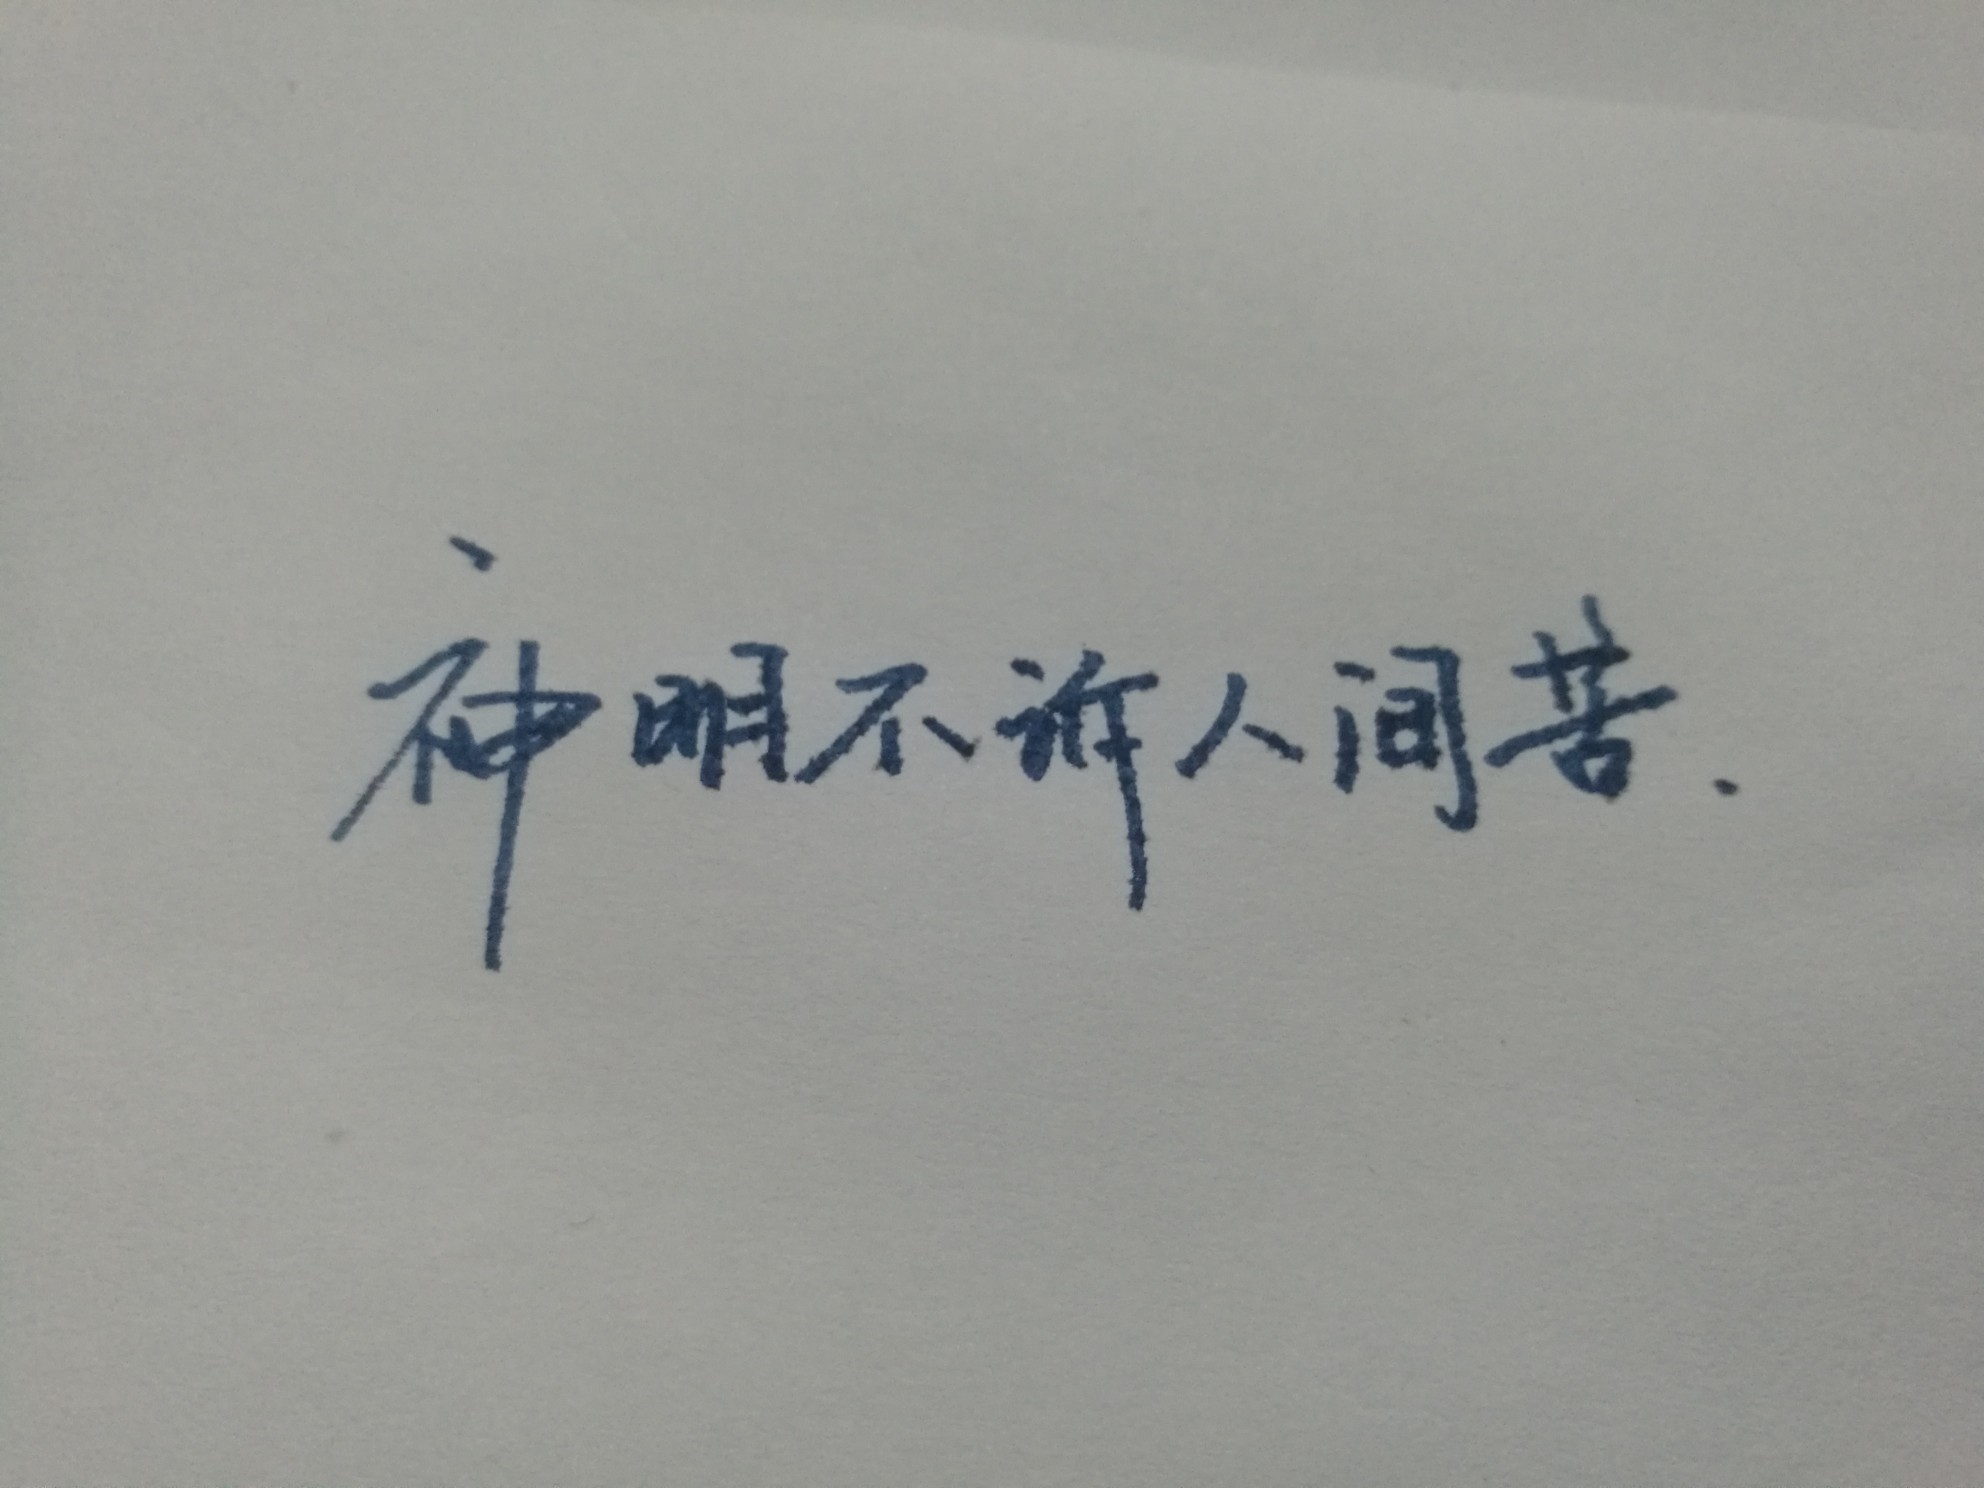 神明不诉人间苦.